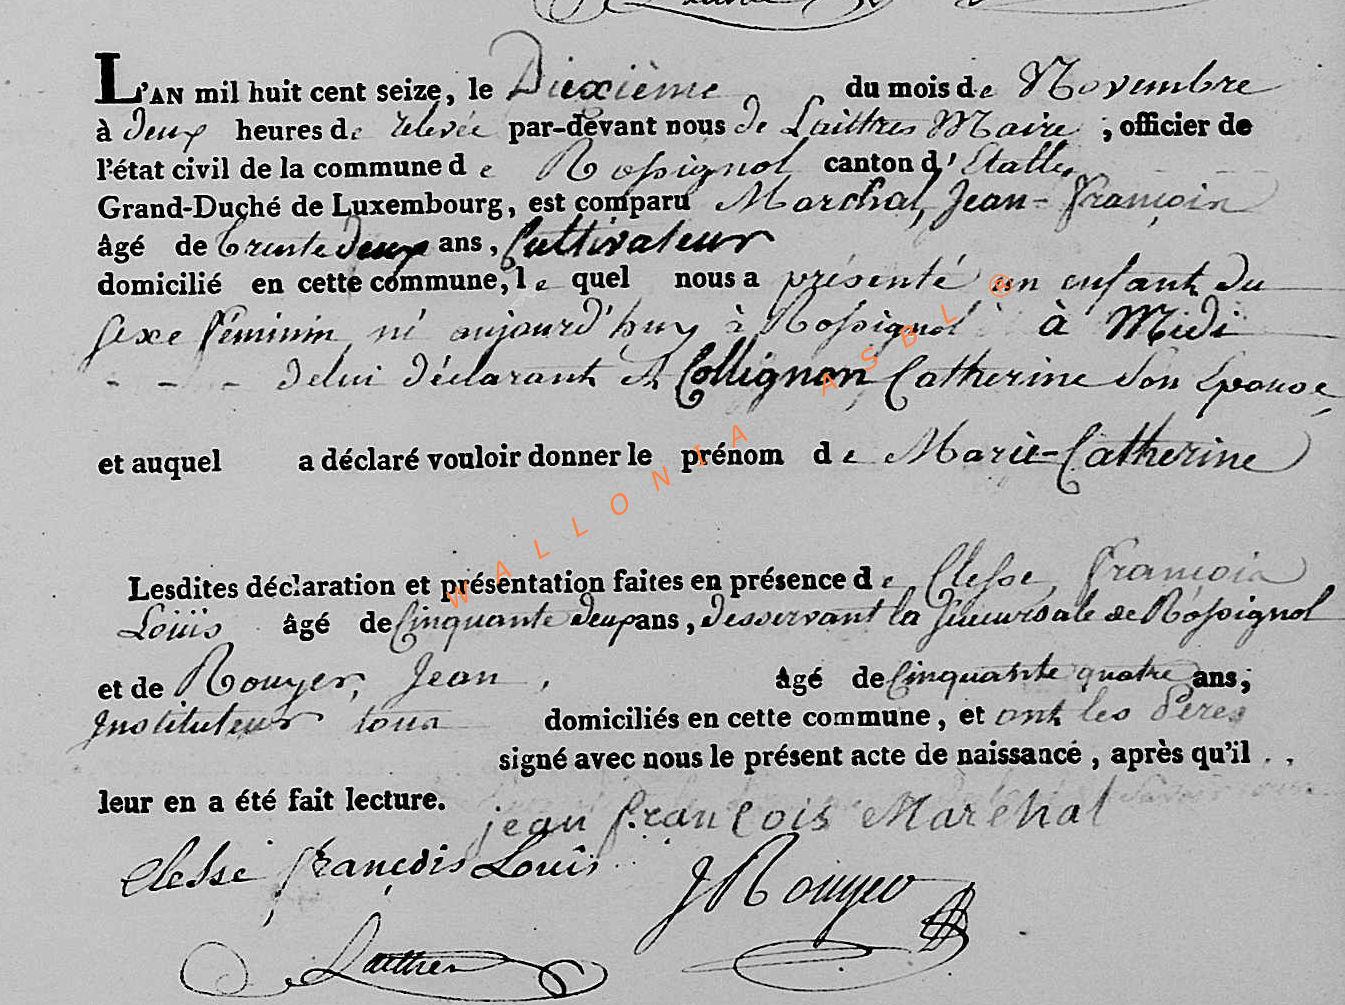 L'AN mil huit cent seize, le Dieuxième du mois de Novembre
à deux heures de relevée par-devant nous de Laittres Maire, officier de
l'état civil de la commune de Rossignol canton d'Etalle,
Grand-Duché de Luxembourg, est comparu Marchal, Jean-François
âgé de trente deux ans, Cultivateur
domicilié en cette commune, lequel nous a présenté un enfant du
sexe féminin né aujourd'huy à Rossignol à Midi
- - - de lui déclarant et Collignon Catherine son Epouse,
et auquel a déclaré vouloir donner le prénom de Marie-Catherine
Lesdites déclaration et présentation faites en présence de Clesse, François
Louis âgé de Cinquante deux ans, desservant la succursale de Rossignol
et de Rouyer, Jean, âgé de Cinquante quatre ans,
Instituteur tous domiciliés en cette commune, et ont les Pères
signé avec nous le présent acte de naissance, après qu'il . .
leur en a été fait lecture.
jean françois Marchal
Clesse françois Louis
JRouyer
Laittres
WALLONIA ASBL ®